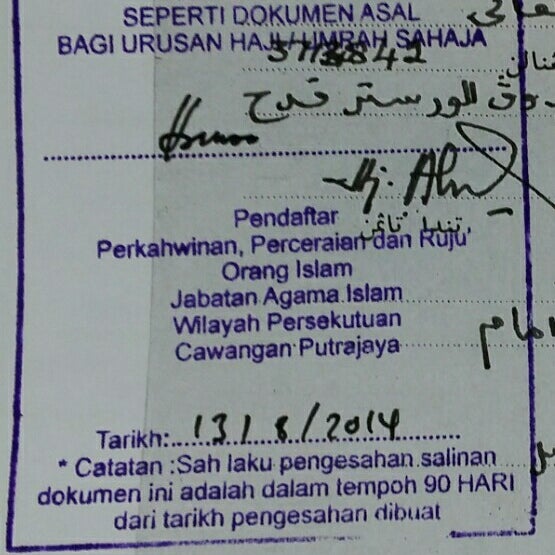 SEPERTI DOKUMEN ASAL
BAGI URUSAN HAJI/UMRAH SAHAJA
Pendaftar
Perkahwinan, Perceraian dan Ruju'
Orang Islam
Jabatan Agama Islam
Wilayah Persekutuan
Cawangan Putrajaya
امام
Tarikh: 13/8/2014
* Catatan :Sah laku pengesahan salinan
dokumen ini adalah dalam tempoh 90 HARI
dari tarikh pengesahan dibuat